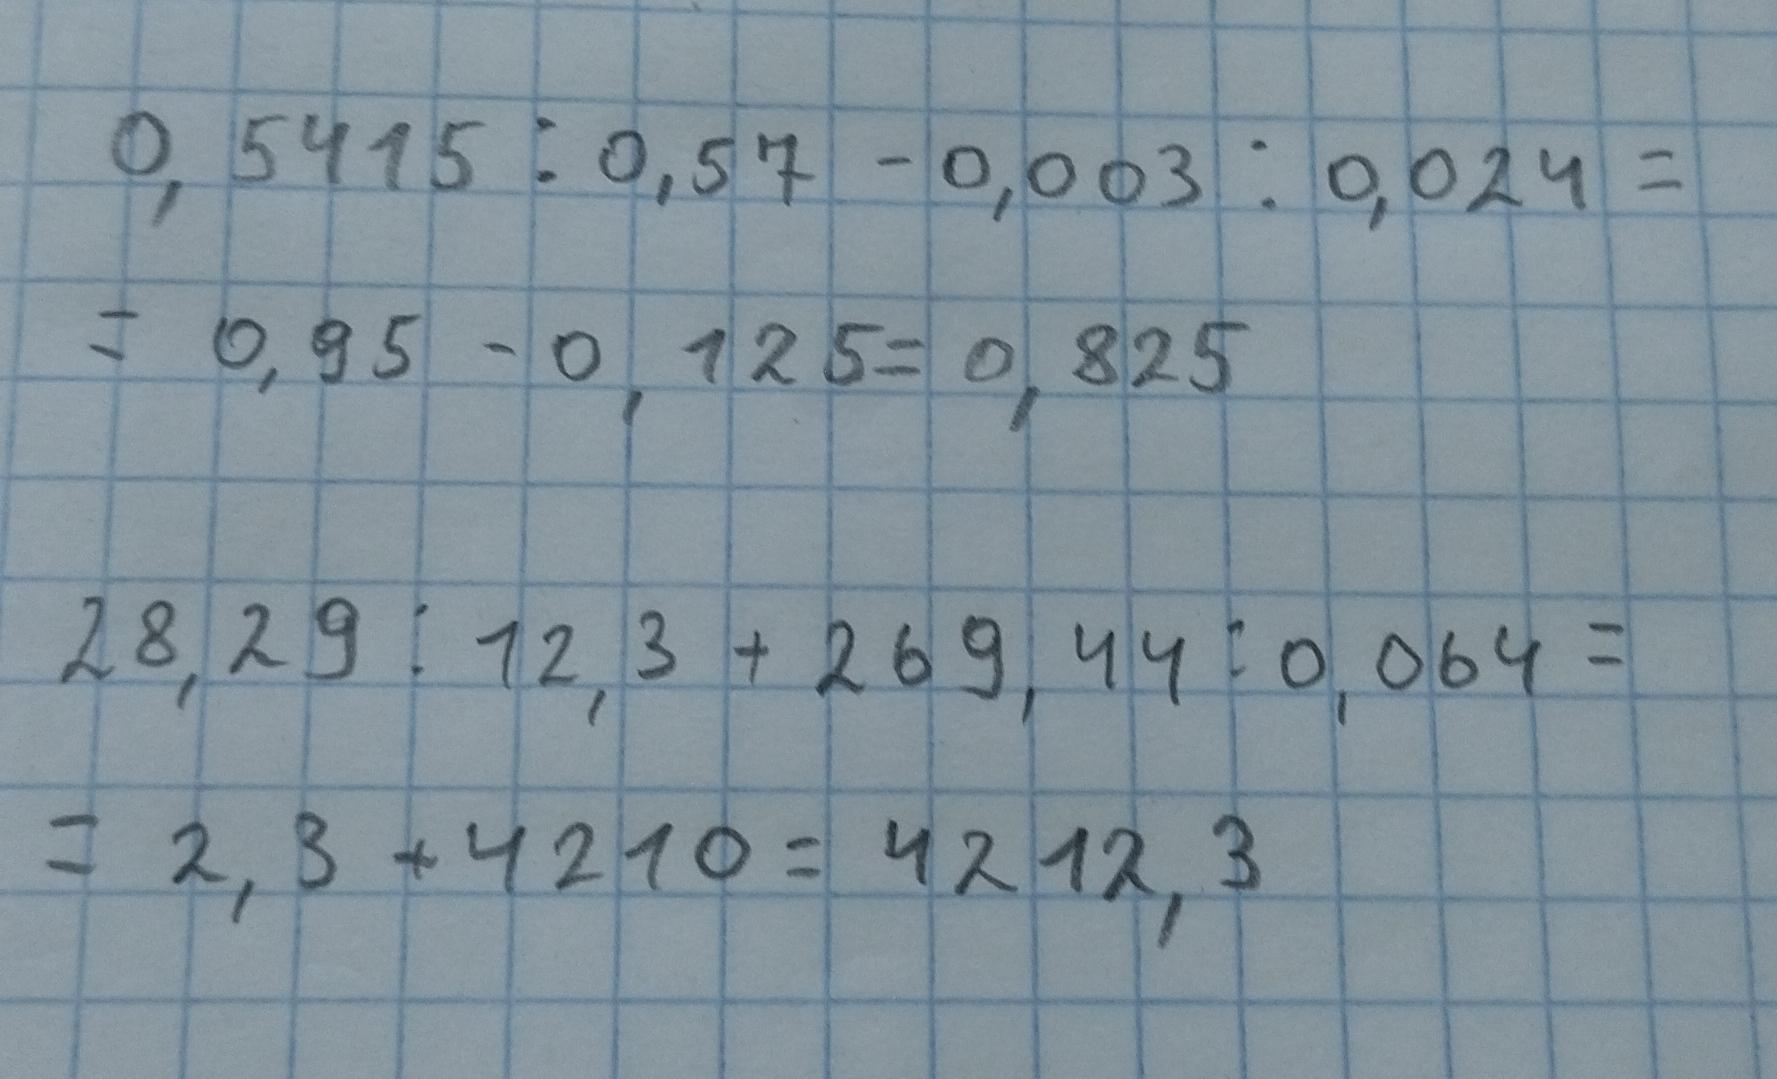 0,5415:0,57-0,003:0,024=
=0,95-0,125=0,825
28,29:12,3+269,44:0,064=
=2,3+4210=4212,3